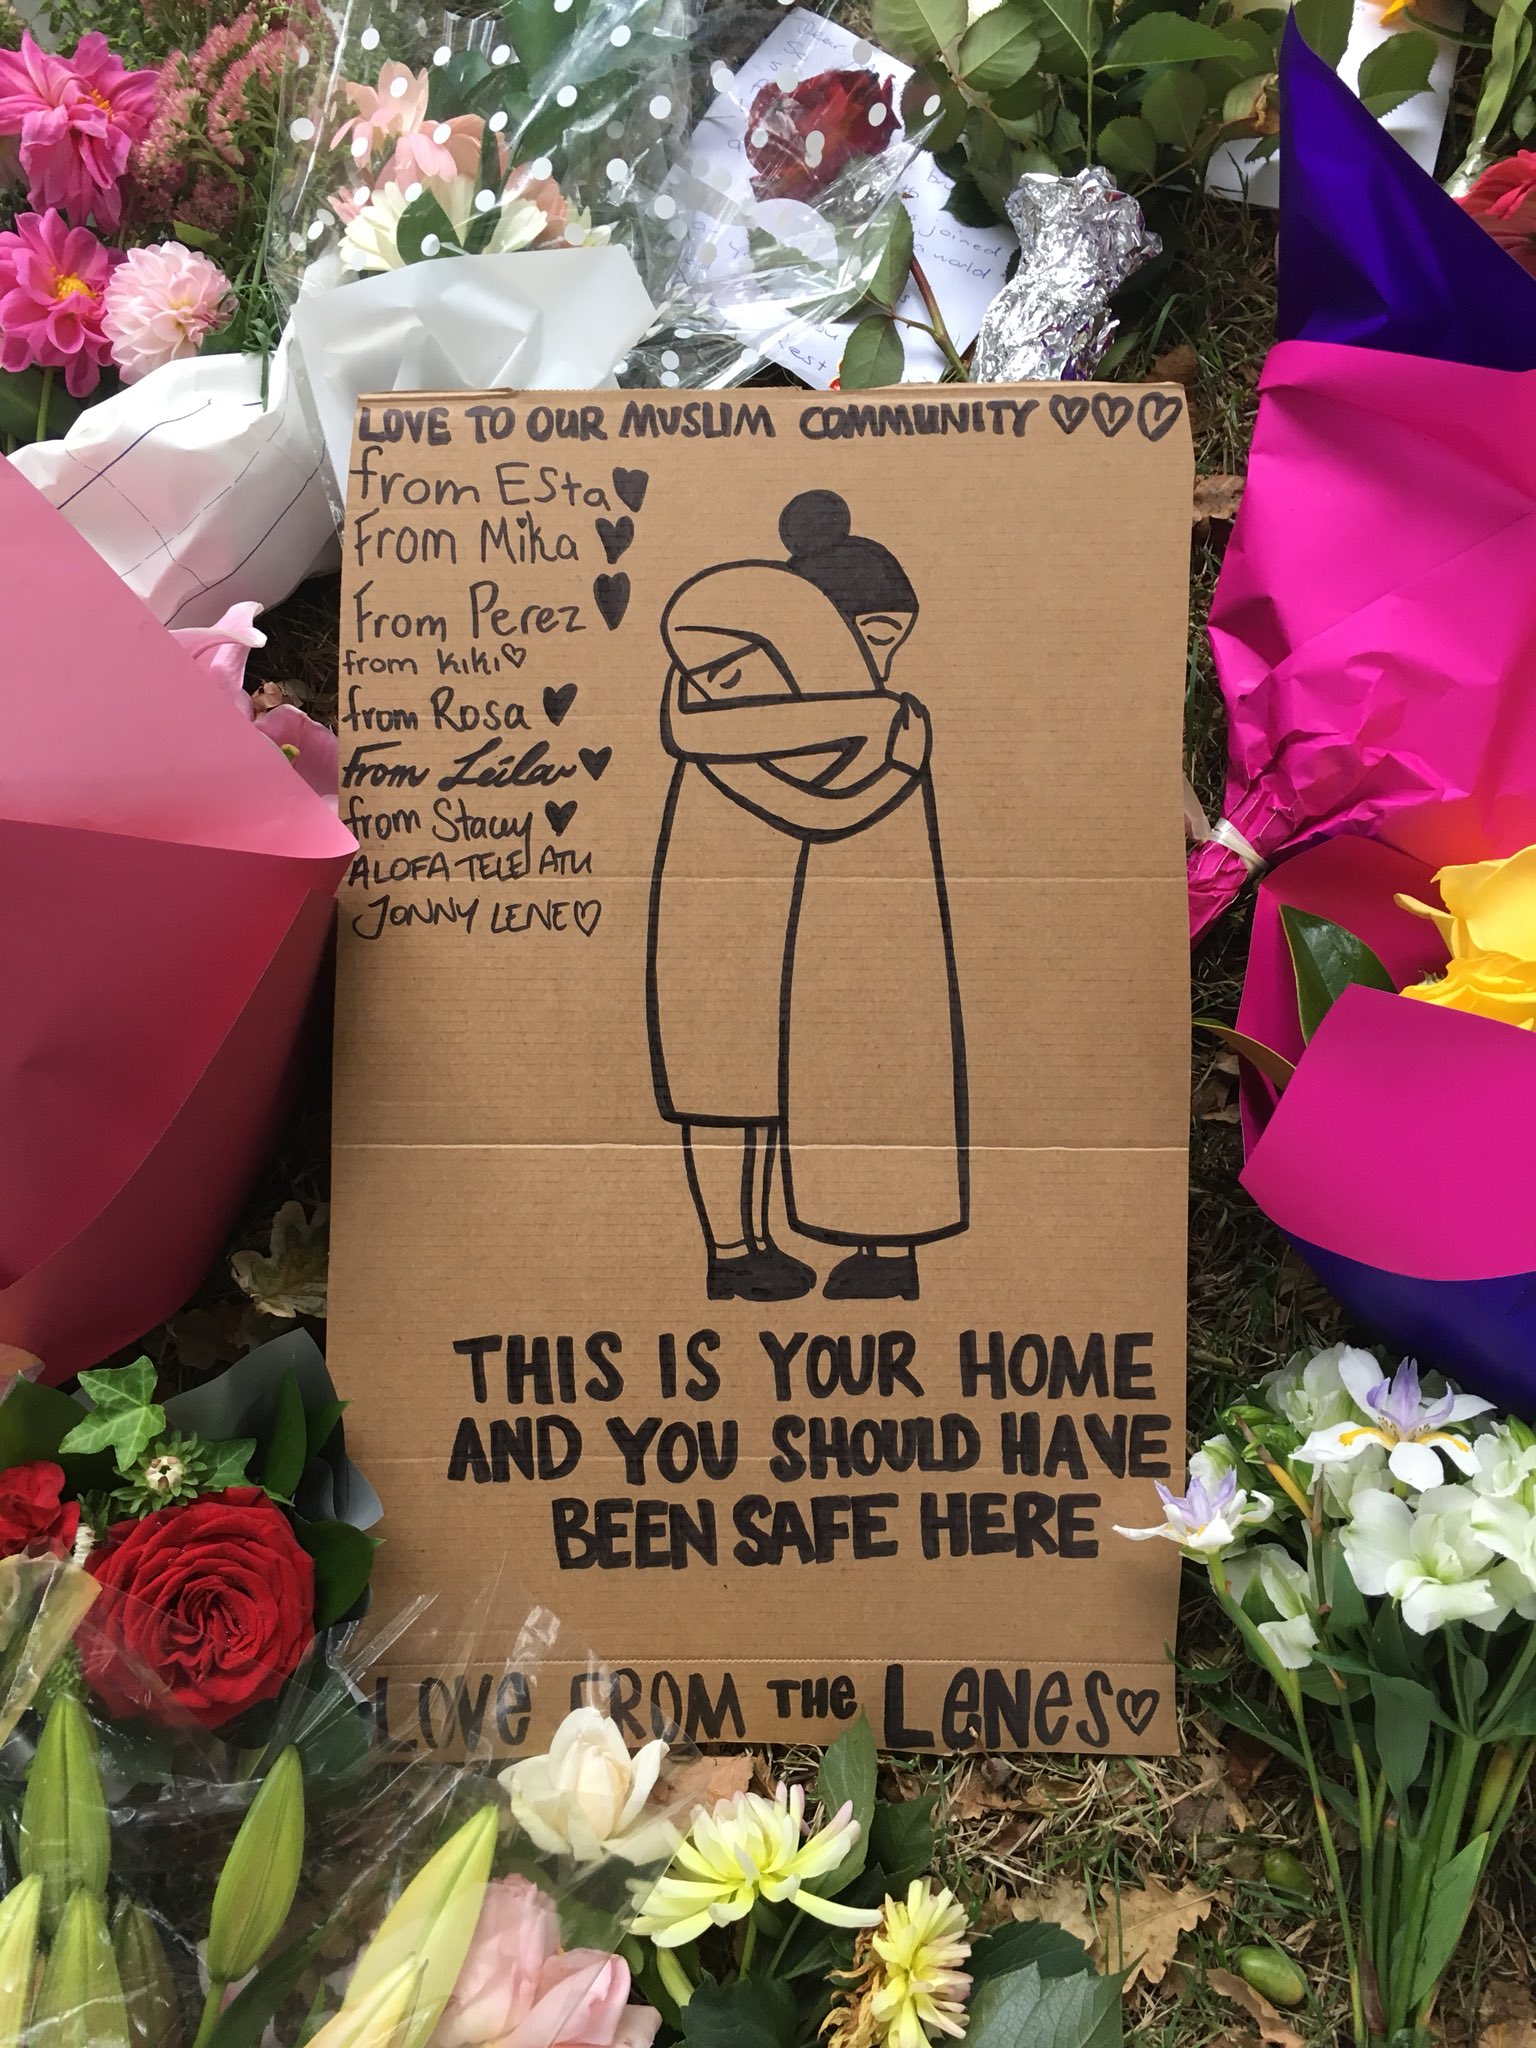 Dear
joined
a world
rest
LOVE TO OUR MUSLIM COMMUNITY ♡♡♡
from Esta ♥
From Mika ♥
From Perez ♥
from Kiki ♡
from Rosa ♥
From Leila ♥
from Stacey ♥
ALOFA TELE ATU
JONNY LENE ♡
THIS IS YOUR HOME
AND YOU SHOULD HAVE
BEEN SAFE HERE
LOVE FROM THE LENES ♡